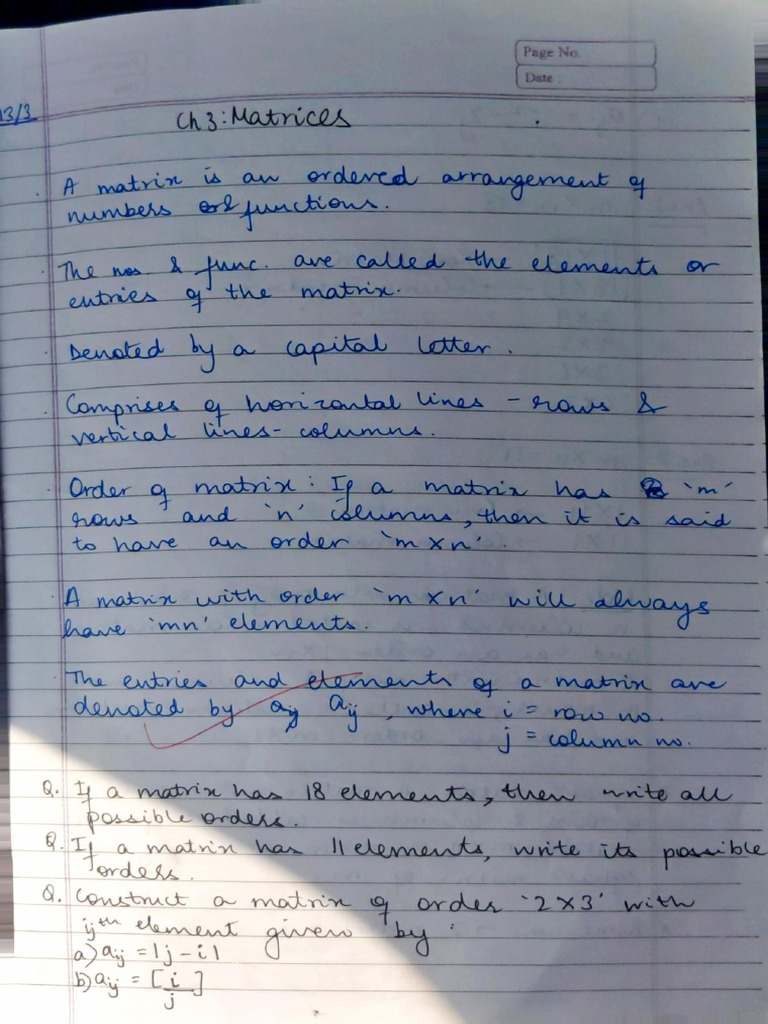 Page No.
Date :
13/3
Ch 3: Matrices
. A matrix is an ordered arrangement of
numbers or functions.
. The nos & func. are called the elements or
entries of the matrix.
. Denoted by a capital letter.
. Comprises of horizontal lines - rows &
vertical lines - columns.
. Order of matrix : If a matrix has 'm'
rows and 'n' columns, then it is said
to have an order 'm x n'.
. A matrix with order 'm x n' will always
have 'mn' elements.
. The entries and elements of a matrix are
denoted by aij aij, where i = row no.
j = column no.
Q. If a matrix has 18 elements, then write all
possible orders.
Q. If a matrix has 11 elements, write its possible
orders.
Q. Construct a matrix of order '2 x 3' with
ijth element given by :
a) aij = |j - i|
b) aij = [i/j]